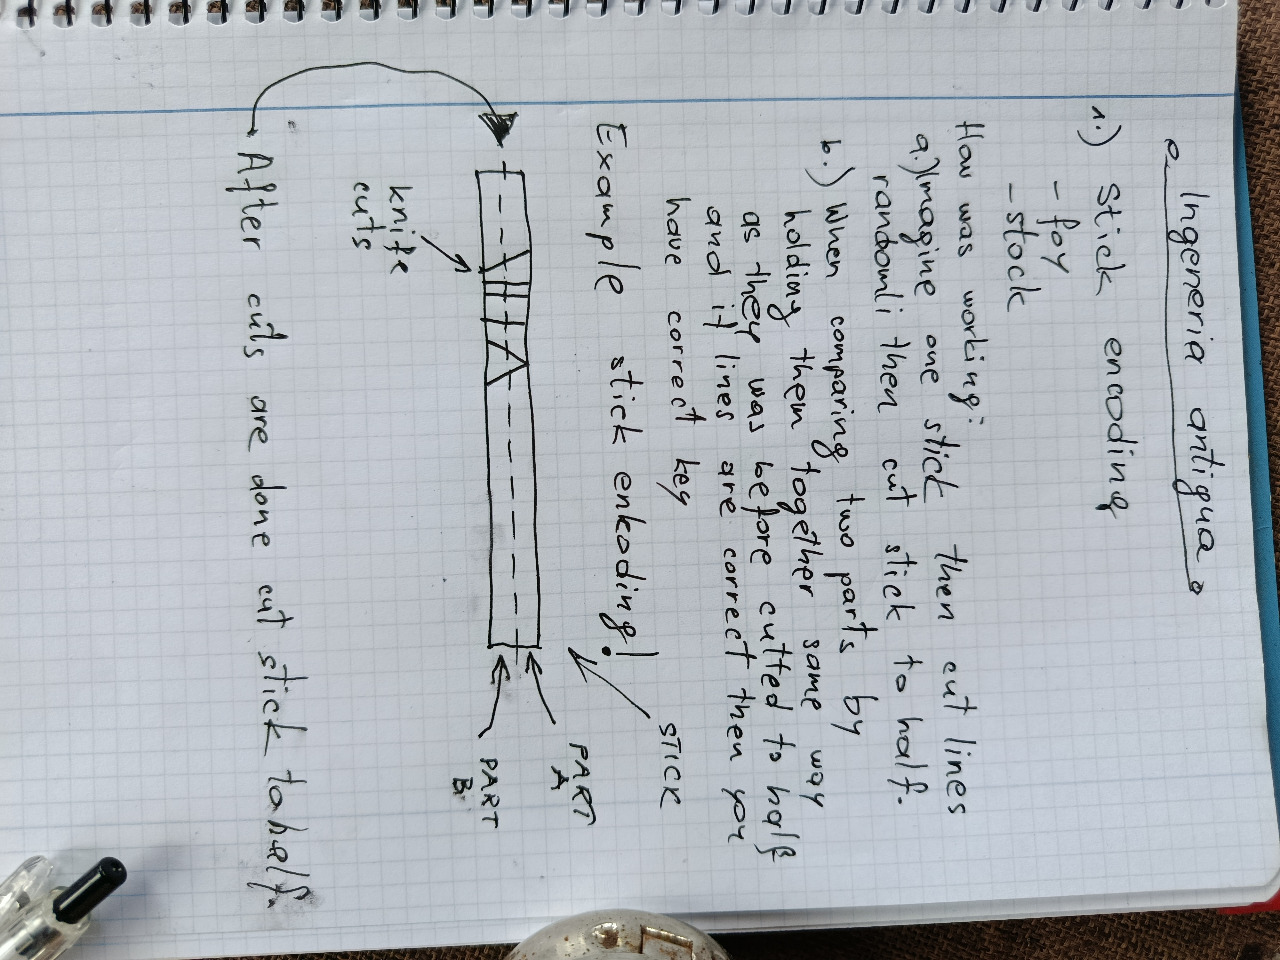 Ingeneria antigua
1.) Stick encoding
- foy
- stock
How was working:
a.) Imagine one stick then cut lines
randomli then cut stick to half.
b.) When comparing two parts by
holding them together same way
as they was before cutted to half
and if lines are correct then you
have correct key
Example stick enkoding!
STICK
PART
A
PART
B
knife
cuts
After cuts are done cut stick to half.